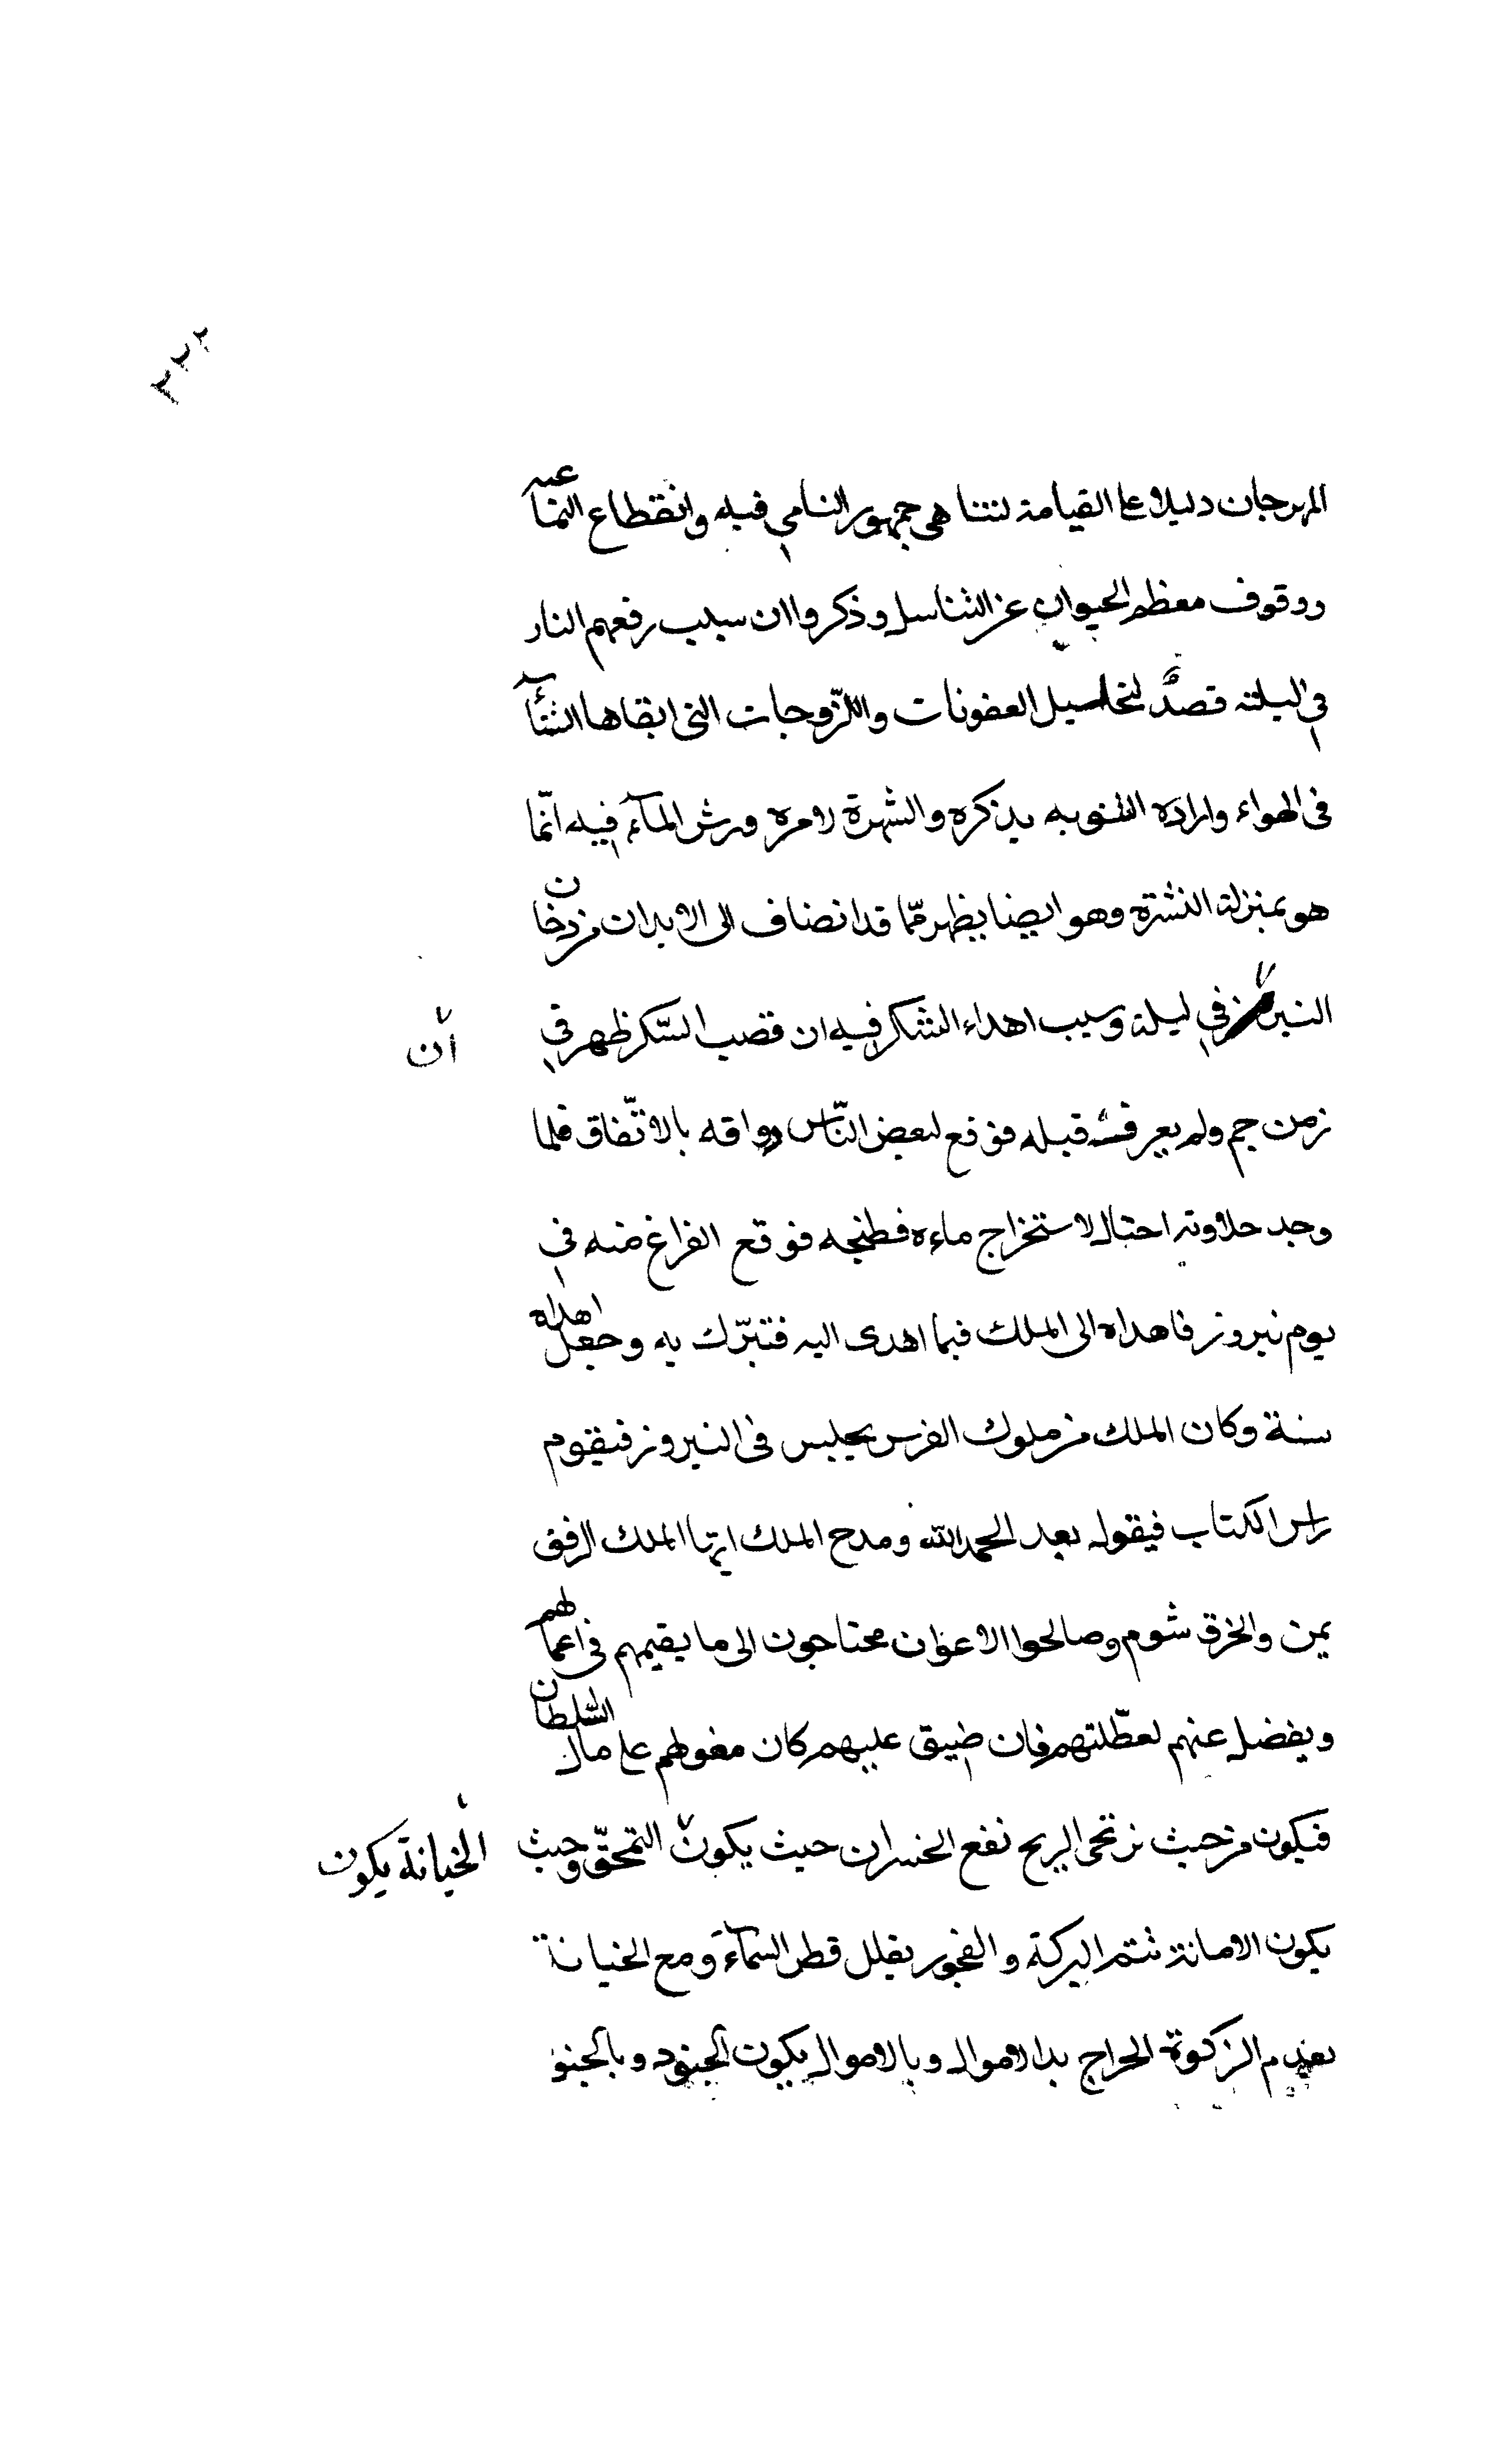 ٢٢٢
المهرجان دليلا على القيامة لتناهى جمهور النامى فيه وانقطاع النماء عنه
ووقوف معظم الحيوان عن التناسل وذكروا ان سبب رفعهم النار
فى ليلته قصدٌ لتحليل العفونات واللّزوجات التى ابقاها الشتآء
فى الهواء وارادة التنويه بذكره والشهرة لامره ورش المآء فيه انّما
هو بمنزلة النشرة وهو ايضا يظهر ممّا قد انضاف الى الابدان من دخان
النيران فى ليلته وسبب اهداء السّكر فيه ان قصب السّكر ظهر فى
ان
زمن جم ولم يعرف قبله فوقع لبعض النّاس وذاقه بالاتّفاق فلما
وجد حلاوته احتال لاستخراج ماءه فطبخه فوقع الفراغ منه فى
يوم نيروز فاهداه الى الملك فيما اهدى اليه فتبرّك به وجعل اهداه
سنة وكان الملك من ملوك الفرس يجلس فى النيروز فيقوم
راس الكتاب فيقول بعد الحمد لله ومدح الملك ايها الملك الرفق
يمن والخرق شوم وصالحوا الاعوان محتاجون الى ما يقيمهم فى اعمالهم
ويفضل عنهم لعطّلتهم فان ضيق عليهم كان معولهم على مال السّلطان
فيكون من حيث نرتجى الربح نفع الخسران حيث يكون التمحّق وحيث
الخيانة يكون
يكون الامانة تتم البركة والفجور يقلل قطر السّمآء ومع الخيانة
الزكوة الخراج الاموال وبالاموال يكون الجنود وبالجنو